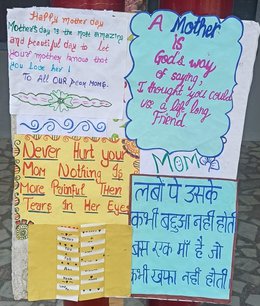 Happy mother day
Mother's day is the most amazing
and beautiful day to let
your mother know that
you Love her !
To All our Dear Moms.
A Mother
is
God's way
of saying,
I thought you could
use a life long
Friend
MOM
Never Hurt your
Mom Nothing Is
More Painful Then
Tears In Her Eyes
लबो पे उसके
कभी बद्दुआ नहीं होती
बस एक माँ है जो
कभी खफा नहीं होती